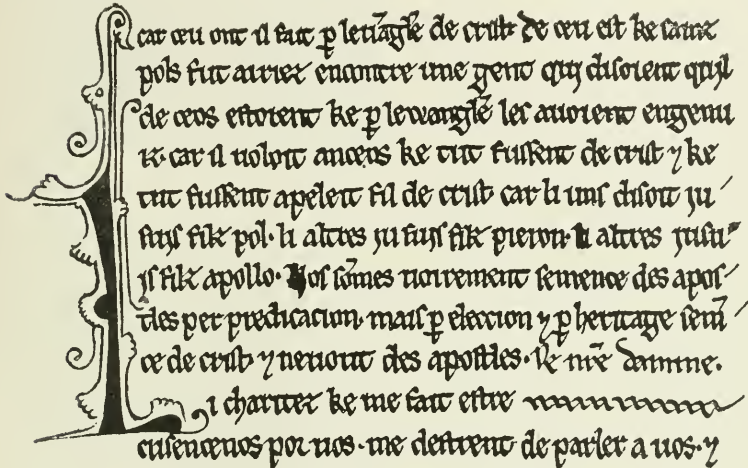 car ceu ont il fait p lewāgle de crist de ceu est ke sainz
pols fut airiez encontre une gent qui disoient quil
de ceos estoient ke p lewangle les avoient engenu
iz. car il voloit anceos ke tut fussent de crist ⁊ ke
tut fussent apeleit fil de crist car li uns disoit ju
suys fiz pol. li altres ju suys fiz pieron. li altres jusu
ys fiz apollo. Nos sōmes voirement semence des apos
tles per predicacion. mais p eleccion ⁊ p heritage sem̄
ce de crist ⁊ nenont des apostles.
Li chariteiz ke me fait estre
cusencenos por vos. me destrent de parler a vos. ⁊